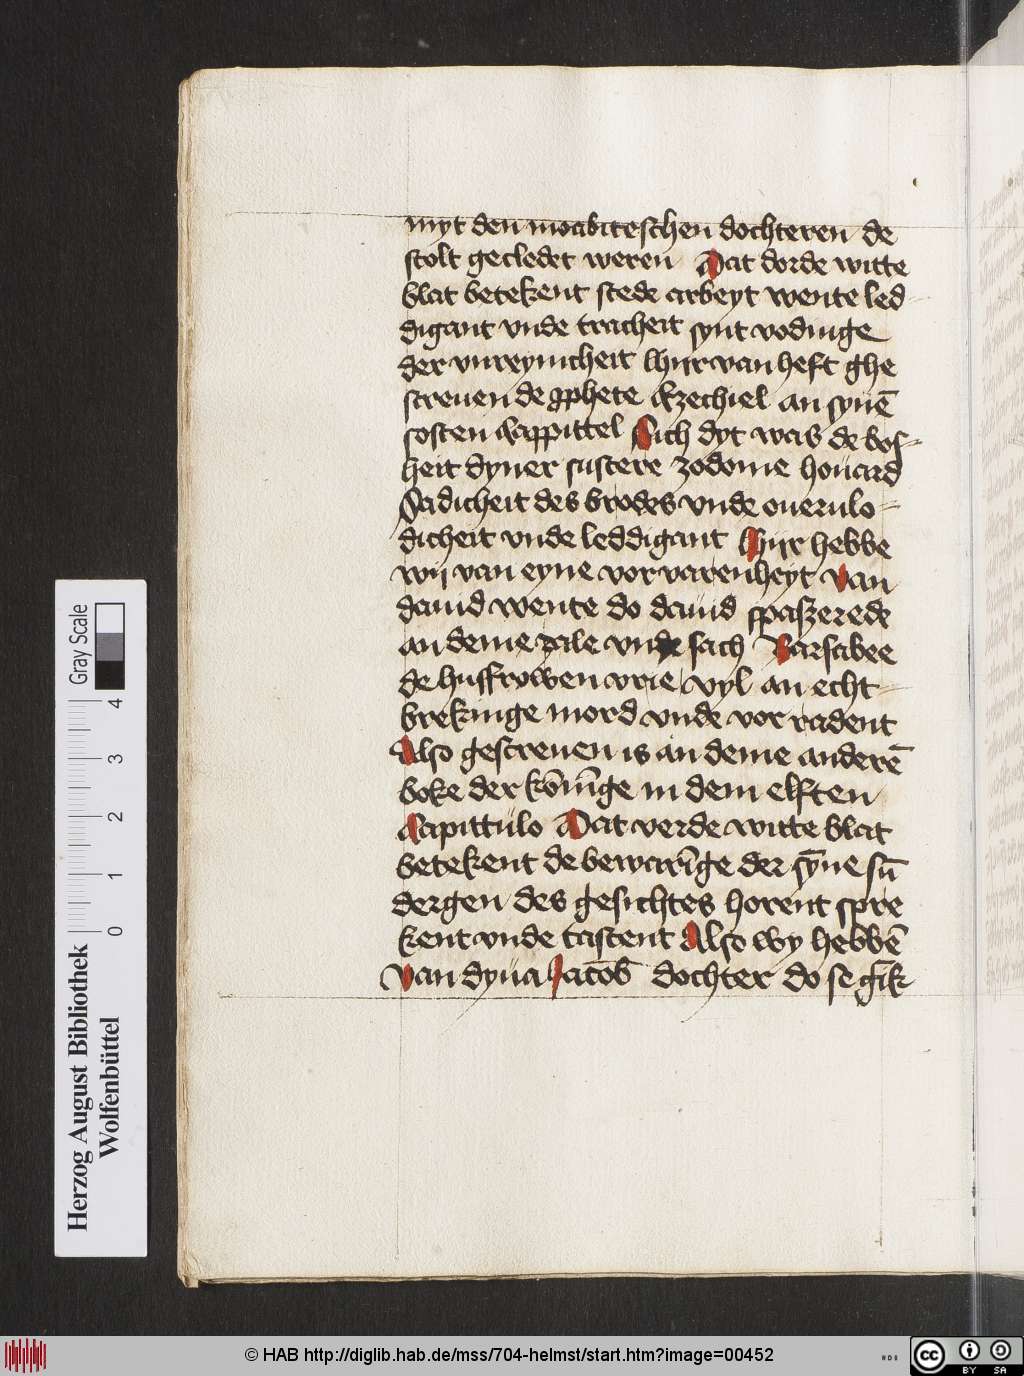 myt den moabiteschen dochteren de
stolt gecledet weren Dat dorde witte
blat betekent stede arbeyt wente led-
digant vnde tracheit synt vodinge
der vnreynicheit Hyr van heft ghe
screuen de ꝓphete Ezechiel an synē
sosten Cappittel Sich dyt was de bos-
heit dyner sustere zodome houard
Sadicheit des brodes vnde ouerulo-
dicheit vnde leddigant Hyr hebbe
wy van eyne vorvarenheyt van
dauid wente do dauid spaszerede
an deme zale vnde sach Barsabee
de husfrowen vrie vyl an echt-
brekinge mord vnde vorradent
Also gescreuen is an deme anderē
boke der kōnīge in dem elften
Capittulo Dat verde witte blat
betekent de bewarīge der sȳne sū
dergen des gesichtes horent spre
kent vnde tastent Also wy hebbē
van dyna Jacob dochter do se gīk
Herzog August Bibliothek
Wolfenbüttel
0 1 2 3 4
Gray Scale
© HAB http://diglib.hab.de/mss/704-helmst/start.htm?image=00452
HAB
cc BY SA